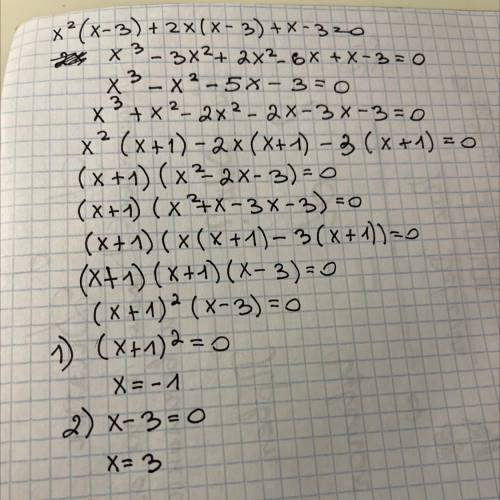 x²(x-3)+2x(x-3)+x-3=0
x³-3x²+2x²-6x+x-3=0
x³-x²-5x-3=0
x³+x²-2x²-2x-3x-3=0
x²(x+1)-2x(x+1)-3(x+1)=0
(x+1)(x²-2x-3)=0
(x+1)(x²+x-3x-3)=0
(x+1)(x(x+1)-3(x+1))=0
(x+1)(x+1)(x-3)=0
(x+1)²(x-3)=0
1) (x+1)²=0
x=-1
2) x-3=0
x=3